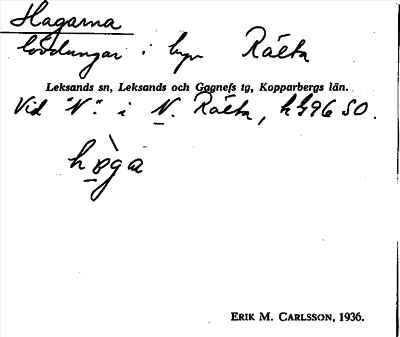 Hagarna
lövdungar i byn Rälta
Leksands sn, Leksands och Gagnefs tg, Kopparbergs län.
Vid "N". i N. Rälta, h496 SO.
ERIK M. CARLSSON, 1936.